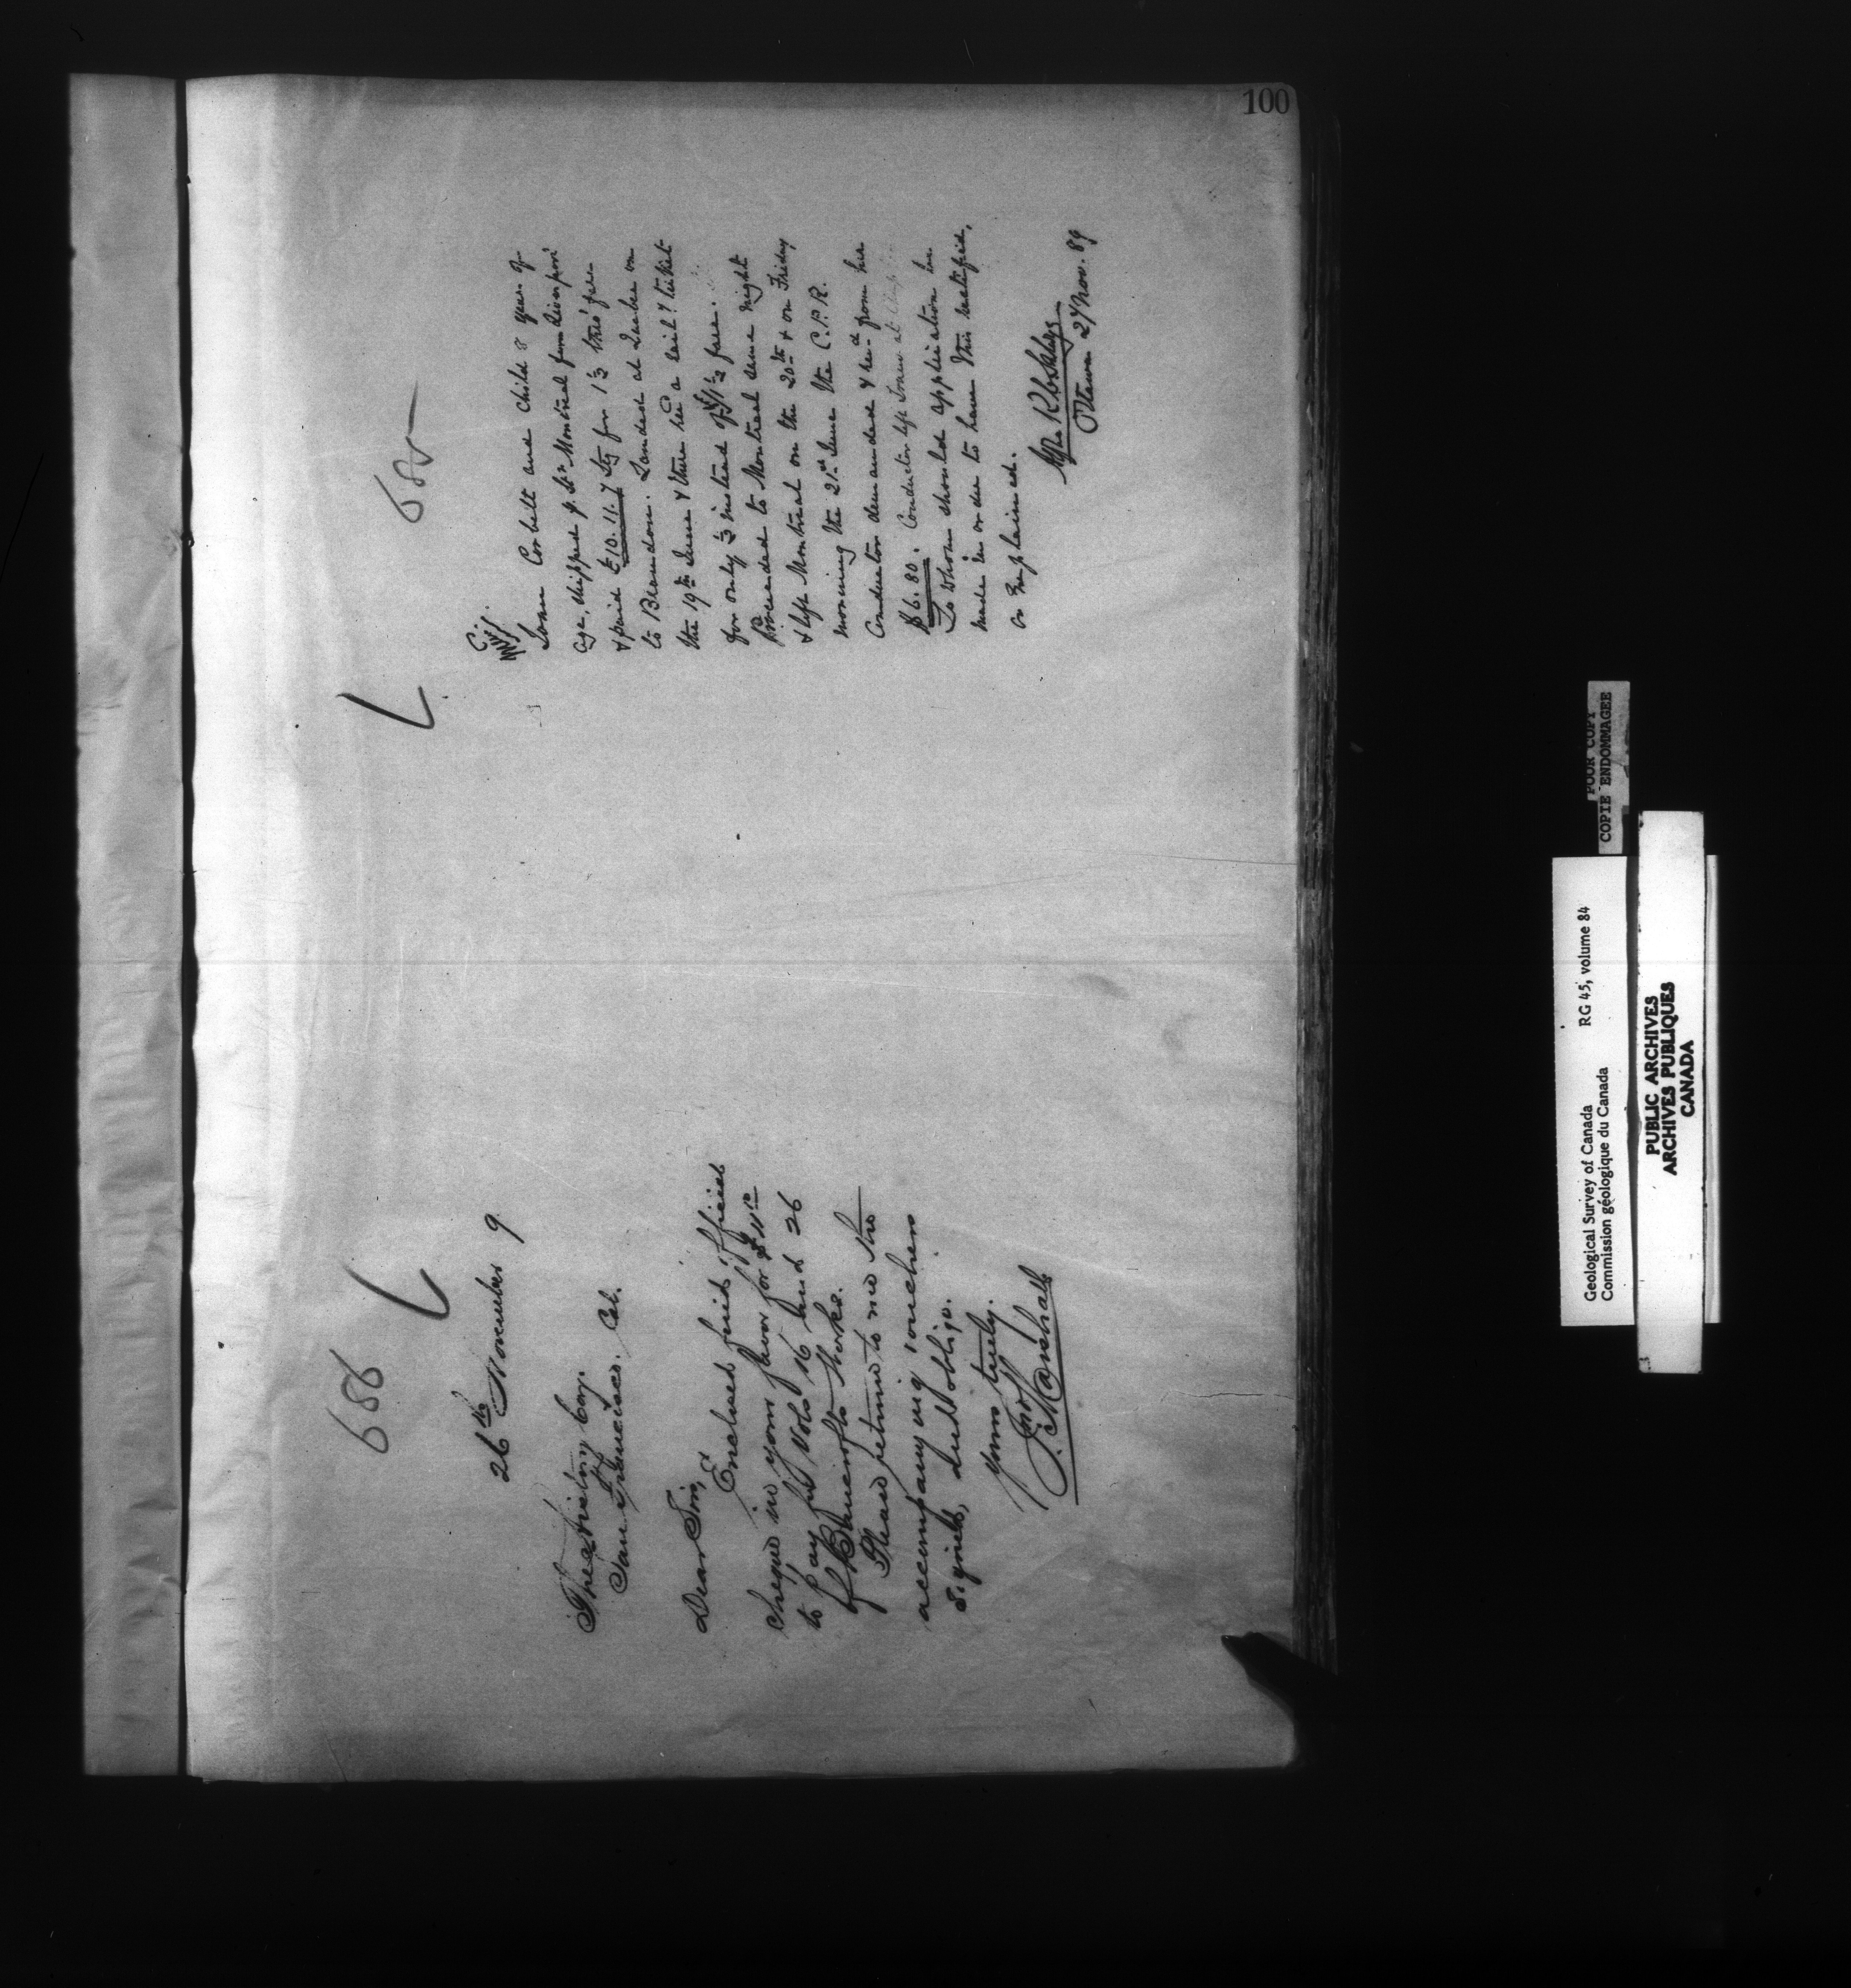 100
686
26th November 9
The History Coy.
San Francisco. Cal.
Dear Sirs,
Enclosed find official
cheque in your favor for $ 9
to pay for Vols 16 and 26
of Bancrofts Works.
Please return to me the
accompanying vouchers
signed, and oblige.
Yours truly.
Jno Marshall
685
Corbett and child 8 years of
age, shipped p. Str Montreal from Liverpool
& paid £10.11.7 Stg for 1 1/3 thro' fare
to Brandon. Landed at Quebec on
the 19th June & there recd a rail ticket
for only 1/3 instead of 1 1/3 fare.
Proceeded to Montreal same night
& left Montreal on the 20th & on Friday
morning the 21st June the C.P.R.
Conductor demanded & recd from her
$6.80. Conductor left Train at
To whom should application be
made in order to have this rectified,
or explained.
Ottawa 27 Nov. 89
POOR COPY
COPIE ENDOMMAGEE
Geological Survey of Canada RG 45, volume 84
Commission géologique du Canada
PUBLIC ARCHIVES
ARCHIVES PUBLIQUES
CANADA